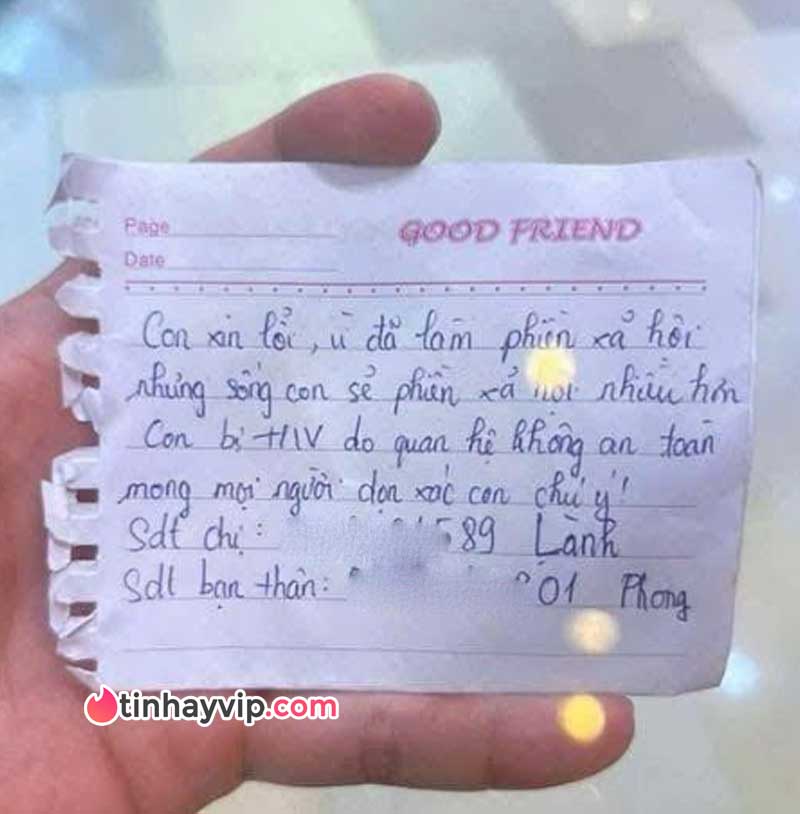 Page
GOOD FRIEND
Date
Con xin lổi, vì đã làm phiền xả hội
nhưng sống con sẻ phiền xả hội nhiều hơn
Con bị HIV do quan hệ không an toàn
mong mọi người dọn xác con chú ý!
Sdt chị: 589 Lành
Sdt bạn thân: 01 Phong
tinhayvip.com